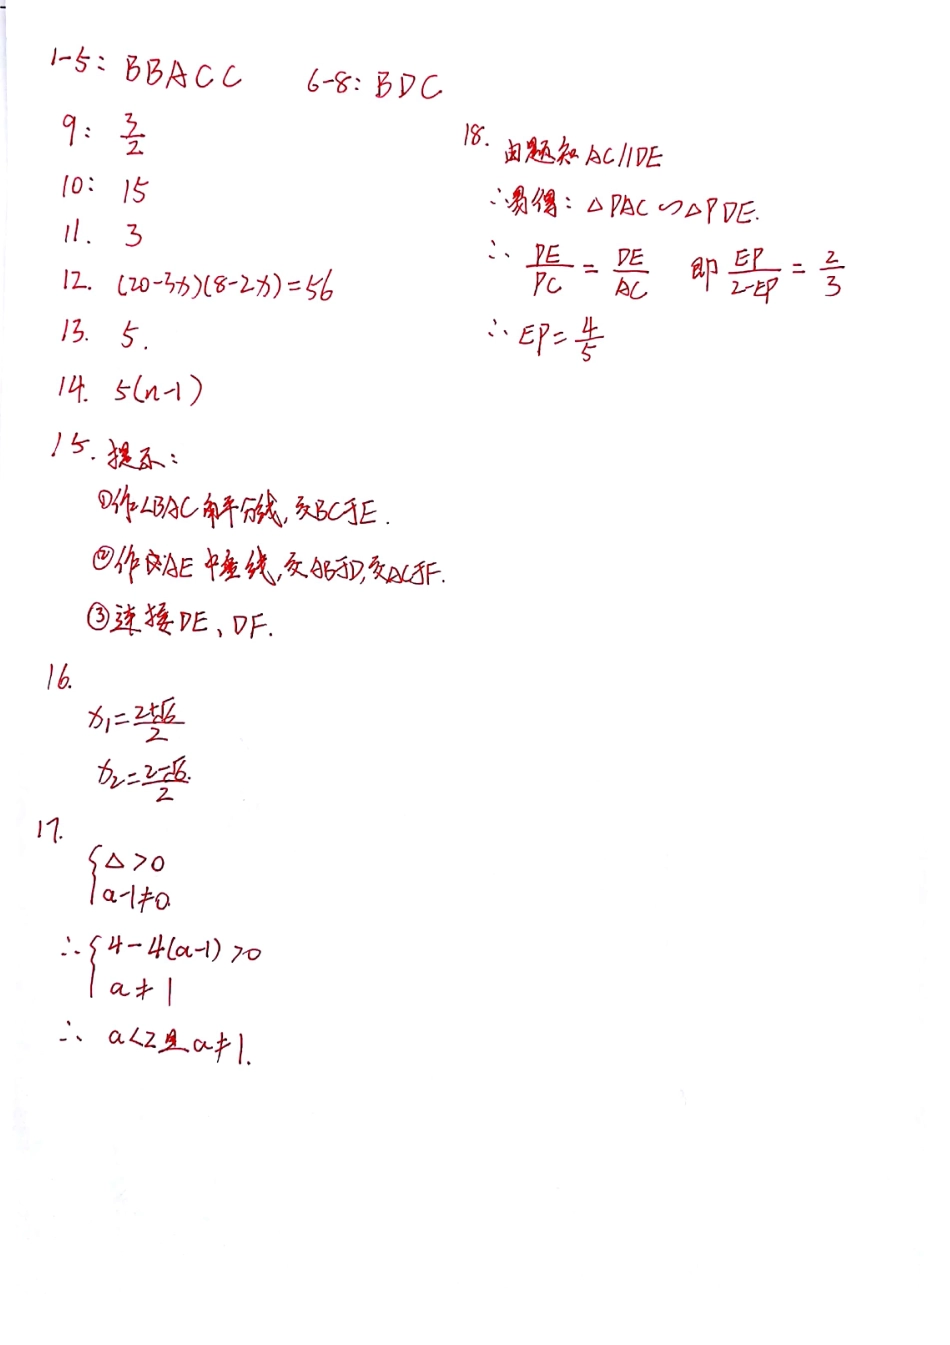 1-5: BBACC 6-8: BDC
9: 3/2
10: 15
11. 3
12. (20-3x)(8-2x)=56
13. 5.
14. 5(n-1)
15. 提示:
①作∠BAC角平分线,交BC于E.
②作AE中垂线,交AB于D,交AC于F.
③连接DE、DF.
16.
x₁=(2+√6)/2
x₂=(2-√6)/2.
17.
{△>0
a-1≠0.
∴{4-4(a-1)>0
a≠1
∴ a<2且a≠1.
18. 由题知AC//DE
∴易得:△PAC∽△PDE.
∴ PE/PC = DE/AC 即 EP/(2-EP) = 2/3
∴ EP=4/5